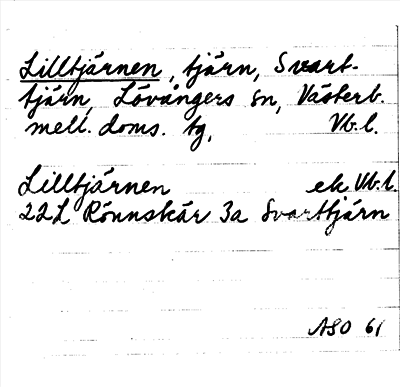 Lilltjärnen, tjärn, Svart-
tjärn, Lövångers sn, Västerb.
mell. doms. tg, Vb.l.
Lilltjärnen ek Vb.l.
22L Rönnskär 3a Svarttjärn
ASO 61